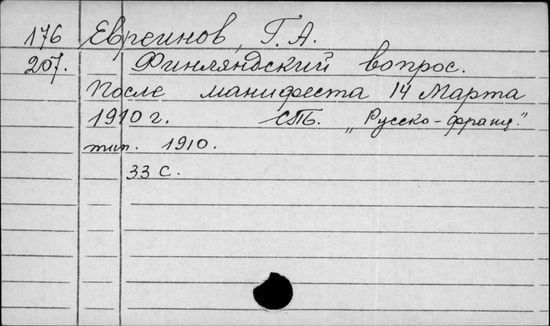 176 Евреинов, Г. А.
207. Финляндский вопрос.
После манифеста 14 Марта
1910 г. СПБ. „Русско-франц."
тип. 1910.
33 с.